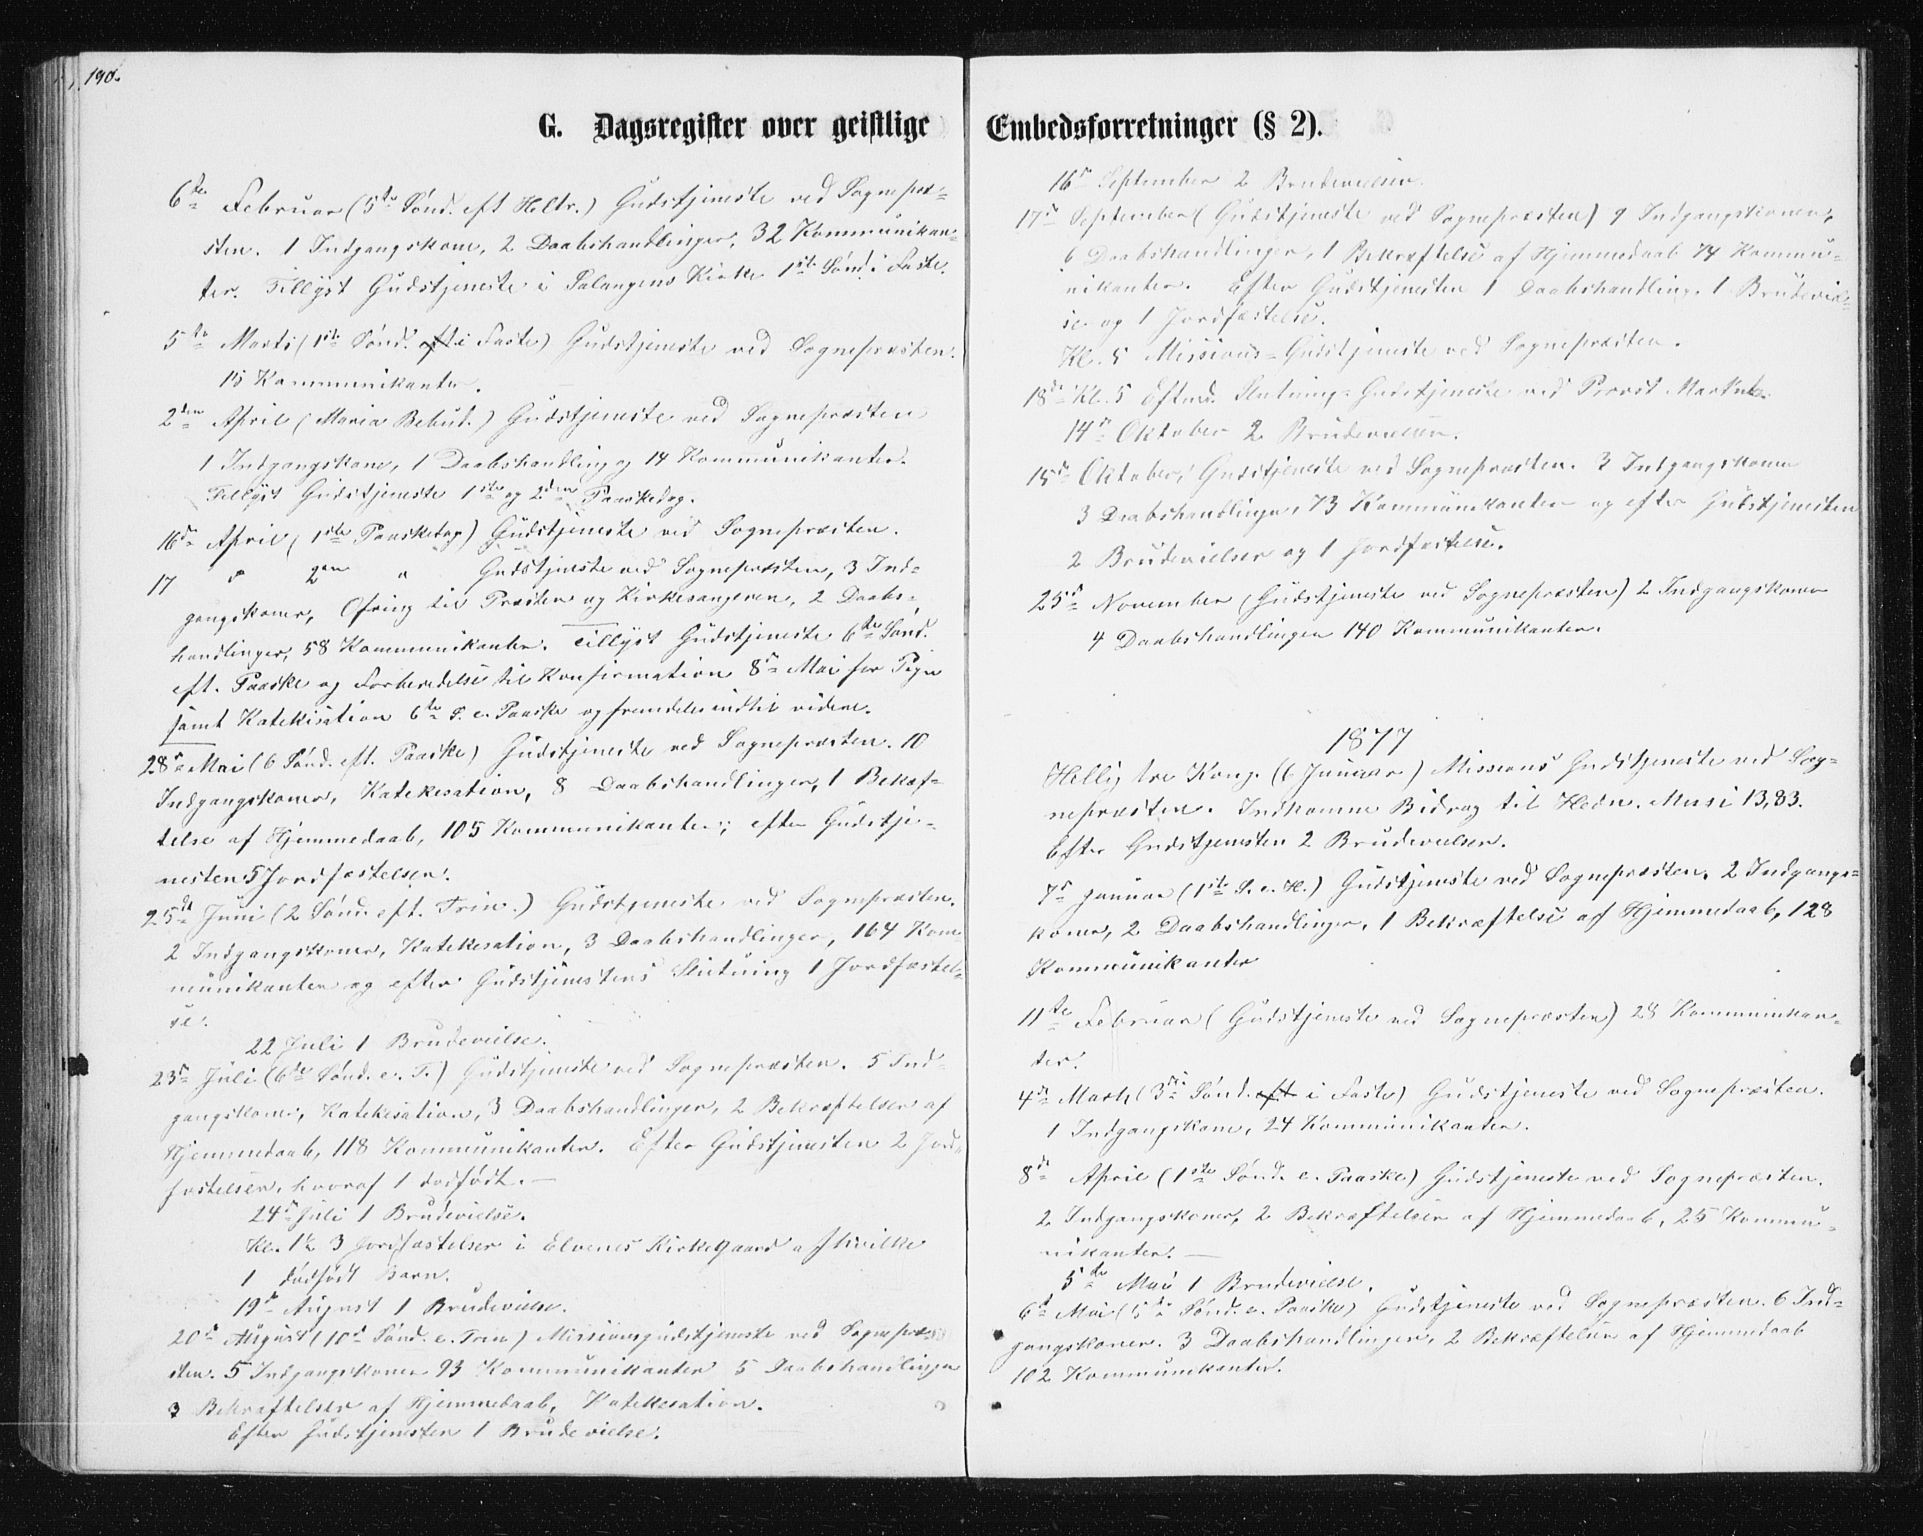 190.
G. Dagsregister over geistlige Embedsforretninger (§ 2).
6te Februar (5te Sönd. eft Heltr.) Gudstjeneste ved Sognepræ-
sten. 1 Indgangskone, 2 Daabshandlinger, 32 Kommunikan-
ter. Tillyst Gudstjeneste i Salangens Kirke 1ste Sönd i Faste.
5te Marts (1ste Sönd. eft i Faste) Gudstjeneste ved Sognepræsten.
15 Kommunikanter.
2den April (Maria Bebud.) Gudstjeneste ved Sognepræsten
1 Indgangskone, 1 Daabshandling og 14 Kommunikanter.
Tillyst Gudstjeneste 1ste og 2den Paaskedag.
16de April (1ste Paaskedag) Gudstjeneste ved Sognepræsten.
17 " 2den " Gudstjeneste ved Sognepræsten, 3 Ind-
gangskoner, Ofring til Præsten og Kirkesangeren, 2 Daabs-
handlinger, 58 Kommunikanter. Tillyst Gudstjeneste 6te Sönd.
eft. Paaske og Forberedelse til Konfirmation 8de Mai for Piger
samt Katekisation 6te S. e. Paaske og fremdeles indtil videre.
28de Mai (6 Sönd. eft. Paaske) Gudstjeneste ved Sognepræsten. 10
Indgangskoner, Katekesation, 8 Daabshandlinger, 1 Bekræf-
telse af Hjemmedaab, 105 Kommunikanter; efter Gudstje-
nesten 5 Jordfæstelser.
25de Juni (2 Sönd. eft. Trin.) Gudstjeneste ved Sognepræsten.
2 Indgangskoner, Katekesation, 3 Daabshandlinger, 164 Kom-
munikanter og efter Gudstjenestens Slutning 1 Jordfæstel-
se.
22 Juli 1 Brudevielse.
23de Juli (6te Sönd. e. T.) Gudstjeneste ved Sognepræsten. 5 Ind-
gangskoner, Katekesation, 3 Daabshandlinger, 2 Bekræftelser af
Hjemmedaab, 118 Kommunikanter. Efter Gudstjenesten 2 Jord-
fæstelser, hvoraf 1 dödfödt.
24de Juli 1 Brudevielse.
Kl. 1½ 3 Jordfæstelser i Elvenes Kirkegaard af hvilke
1 dödfödt Barn.
19de August 1 Brudevielse.
20de August (10de Sönd. e. Trin) Missionsgudstjeneste ved Sognepræ-
sten. 5 Indgangskoner 93 Kommunikanter 5 Daabshandlinger
3 Bekræftelser af Hjemmedaab, Katekesation.
Efter Gudstjenesten 1 Brudevielse.
16de September 2 Brudevielser.
17de September (Gudstjeneste ved Sognepræsten) 9 Indgangskoner,
6 Daabshandlinger, 1 Bekræftelse af Hjemmedaab 74 Kommu-
nikanter. Efter Gudstjenesten 1 Daabshandling, 1 Brudeviel-
se og 1 Jordfæstelse.
Kl. 5 Missions-Gudstjeneste ved Sognepræsten.
18de Kl. 5 Eftmd. Slutnings-Gudstjeneste ved Provst
14de Oktober 2 Brudevielser.
15de Oktober, Gudstjeneste ved Sognepræsten. 3 Indgangskoner
3 Daabshandlinger, 73 Kommunikanter og efter Gudstjenesten
2 Brudevielser og 1 Jordfæstelse.
25de November (Gudstjeneste ved Sognepræsten) 2 Indgangskoner
4 Daabshandlinger 140 Kommunikanter.
1877
Hellig tre Kong. (6 Januar) Missions Gudstjeneste ved Sog-
nepræsten. Indkomne Bidrag til Hedn. Missi 13,83.
Efter Gudstjenesten 2 Brudevielser.
7de Januar (1ste S. e. H.) Gudstjeneste ved Sognepræsten. 2 Indgangs-
koner, 2 Daabshandlinger, 1 Bekræftelse af Hjemmedaab, 128
Kommunikanter
11te Februar (Gudstjeneste ved Sognepræsten) 28 Kommunikan-
ter.
4de Marts (3die Sönd. eft i Faste) Gudstjeneste ved Sognepræsten.
1 Indgangskone, 24 Kommunikanter.
8de April (1ste Sönd. e. Paaske) Gudstjeneste ved Sognepræsten.
2 Indgangskoner, 2 Bekræftelser af Hjemmedaab, 25 Kommu-
nikanter.
5te Mai 1 Brudevielse.
6te Mai (5te Sönd. e. Paaske) Gudstjeneste ved Sognepræsten. 6 Ind-
gangskoner. 3 Daabshandlinger, 2 Bekræftelser af Hjemmedaab
102 Kommunikanter.